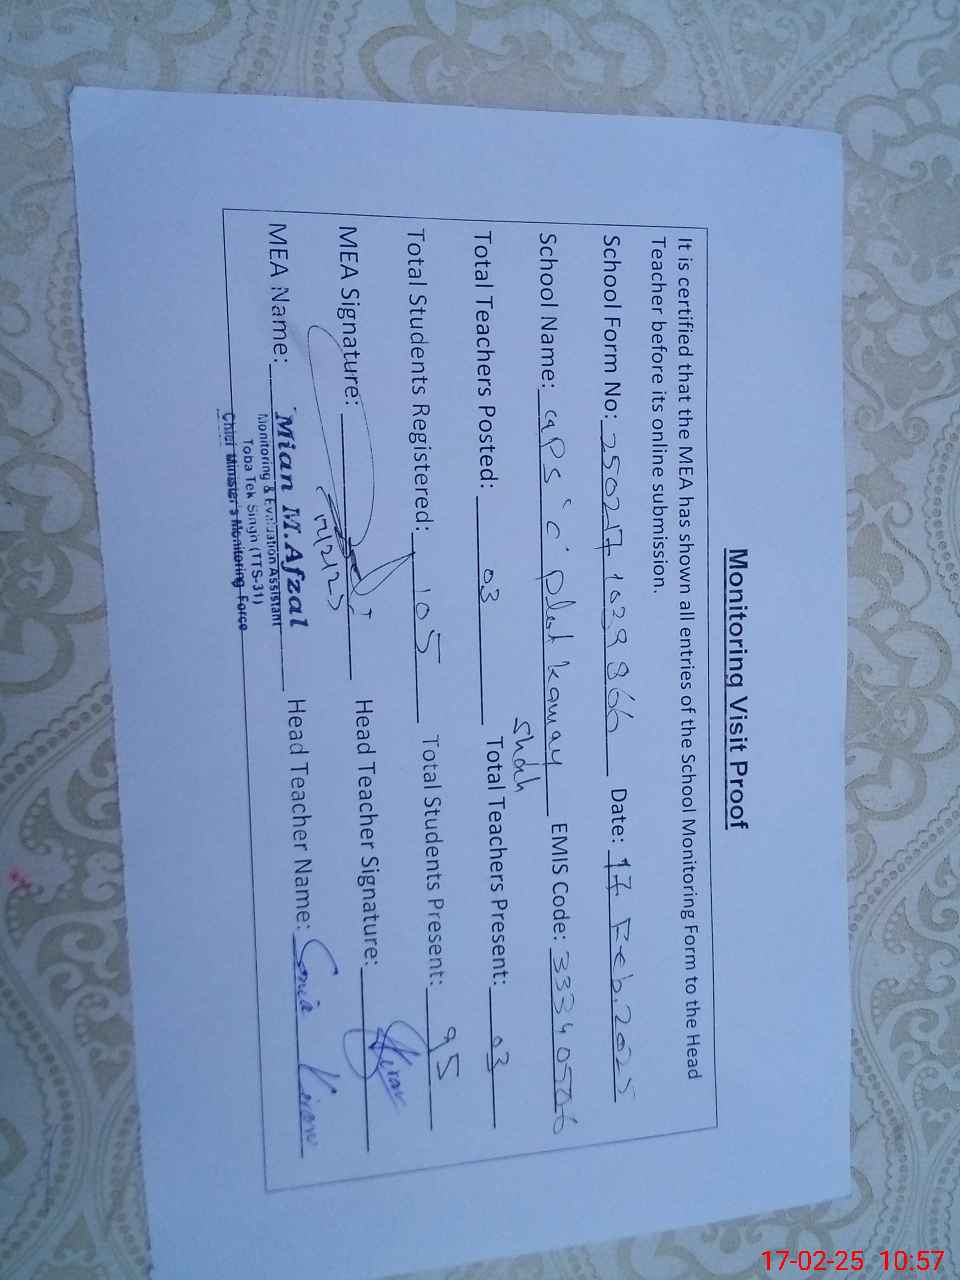 Monitoring Visit Proof
It is certified that the MEA has shown all entries of the School Monitoring Form to the Head
Teacher before its online submission.
School Form No: 250217 1039866 Date: 17 Feb. 2025
School Name: GPS 'C' plot kamay Shah EMIS Code: 33340506
Total Teachers Posted: 03 Total Teachers Present: 03
Total Students Registered: 105 Total Students Present: 95
MEA Signature: 17/2/25 Head Teacher Signature: Kiran
MEA Name: Mian M.Afzal Head Teacher Name: Sonia Kiran
Monitoring & Evaluation Assistant
Toba Tek Singh (TTS-31)
Chief Minister's Monitoring Force
17-02-25 10:57